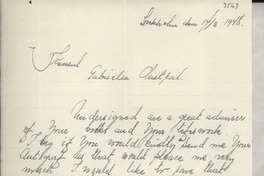 3567
Stockholm den 14/2-1948.
Gabriela Mistral.
Undersigned are a great admirer
of Your books and Your lifeswork
I beg if You would kindly send me Your
Autograf as that would please me very
much I would like to have that